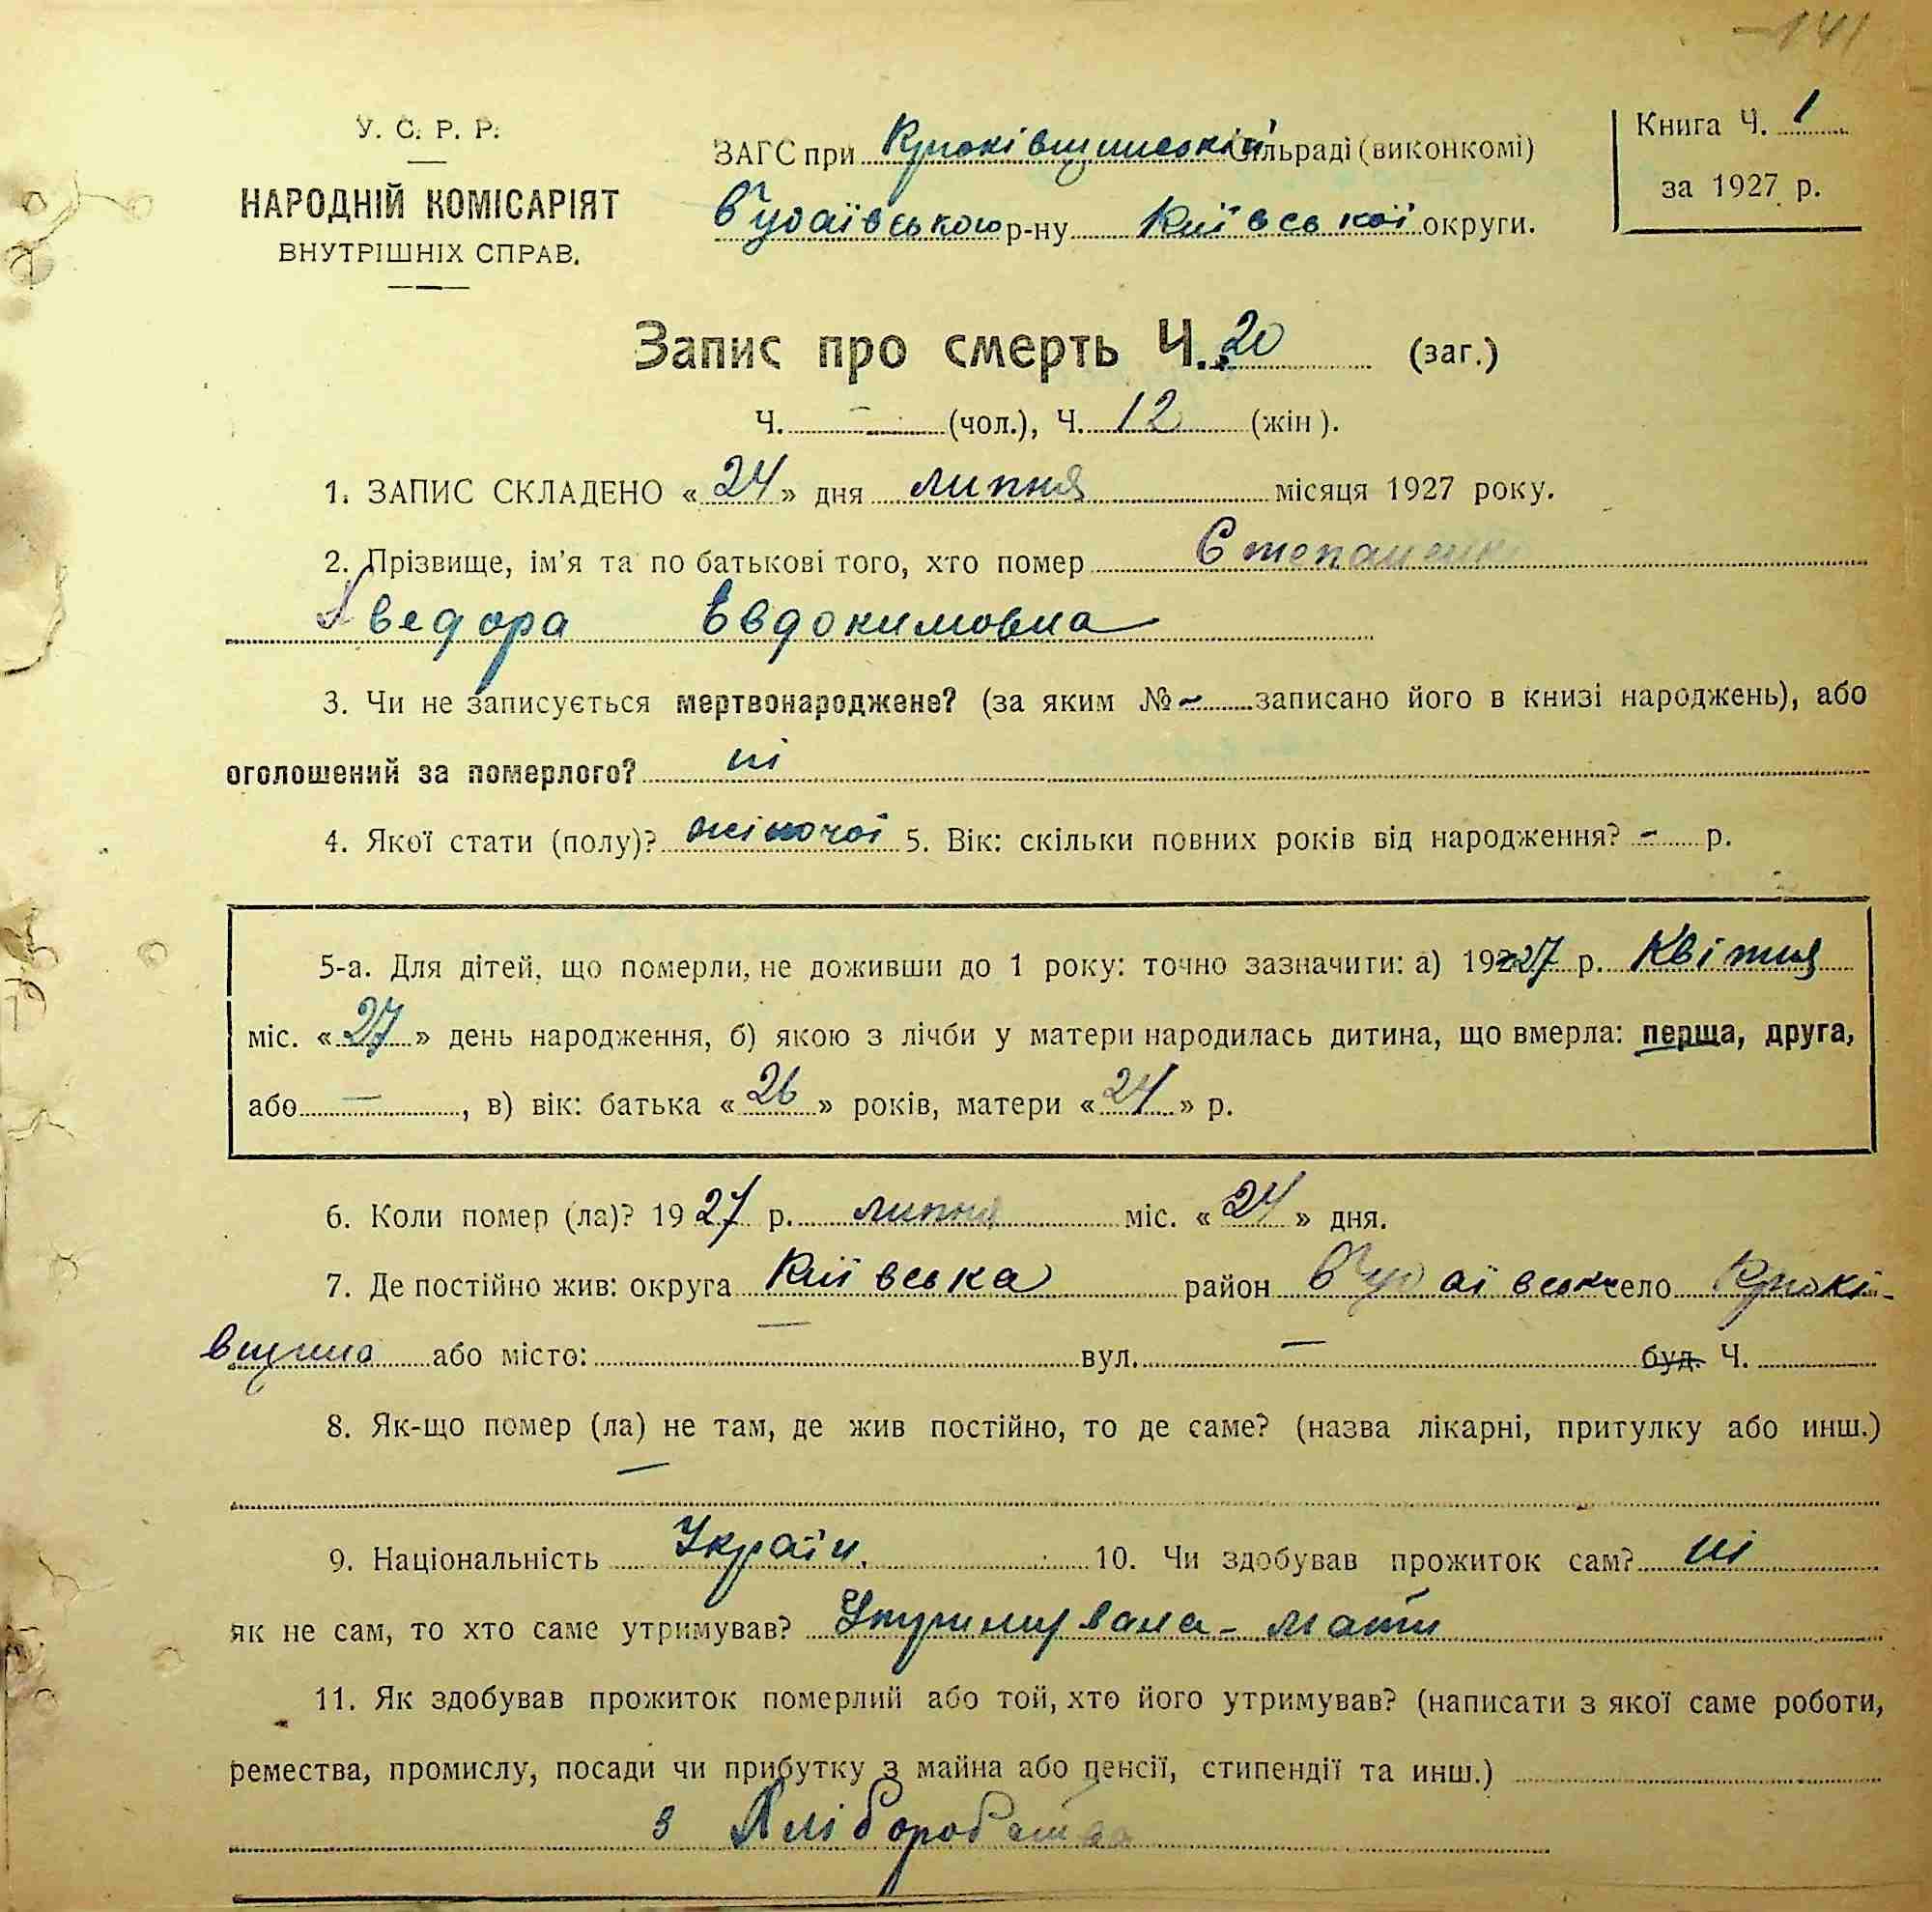 141
У. С. Р. Р.
НАРОДНІЙ КОМІСАРІЯТ
ВНУТРІШНІХ СПРАВ.
ЗАГС при Крюківщинській сільраді (виконкомі)
Будаївського р-ну Київської округи.
Книга Ч. 1
за 1927 р.
Запис про смерть Ч. 20 (заг.)
Ч. — (чол.), Ч. 12 (жін).
1. ЗАПИС СКЛАДЕНО «24» дня липня місяця 1927 року.
2. Прізвище, ім'я та по батькові того, хто помер Степаненко
Хведора Евдокимовна
3. Чи не записується мертвонароджене? (за яким № ~ записано його в книзі народжень), або
оголошений за померлого? ні
4. Якої стати (полу)? жіночої 5. Вік: скільки повних років від народження? - р.
5-а. Для дітей, що померли, не доживши до 1 року: точно зазначити: а) 1927 р. Квітня
міс. «27» день народження, б) якою з лічби у матери народилась дитина, що вмерла: перща, друга,
або —, в) вік: батька «26» років, матери «24» р.
6. Коли помер (ла)? 1927 р. липня міс. «24» дня.
7. Де постійно жив: округа Київська район Будаївськ село Крюкі-
вщина або місто: — вул. — буд. Ч.
8. Як-що помер (ла) не там, де жив постійно, то де саме? (назва лікарні, притулку або инш.)
—
9. Національність Україн. 10. Чи здобував прожиток сам? ні
як не сам, то хто саме утримував? Утримувала - мати
11. Як здобував прожиток померлий або той, хто його утримував? (написати з якої саме роботи,
ремества, промислу, посади чи прибутку з майна або пенсії, стипендії та инш.)
з Хліборобства